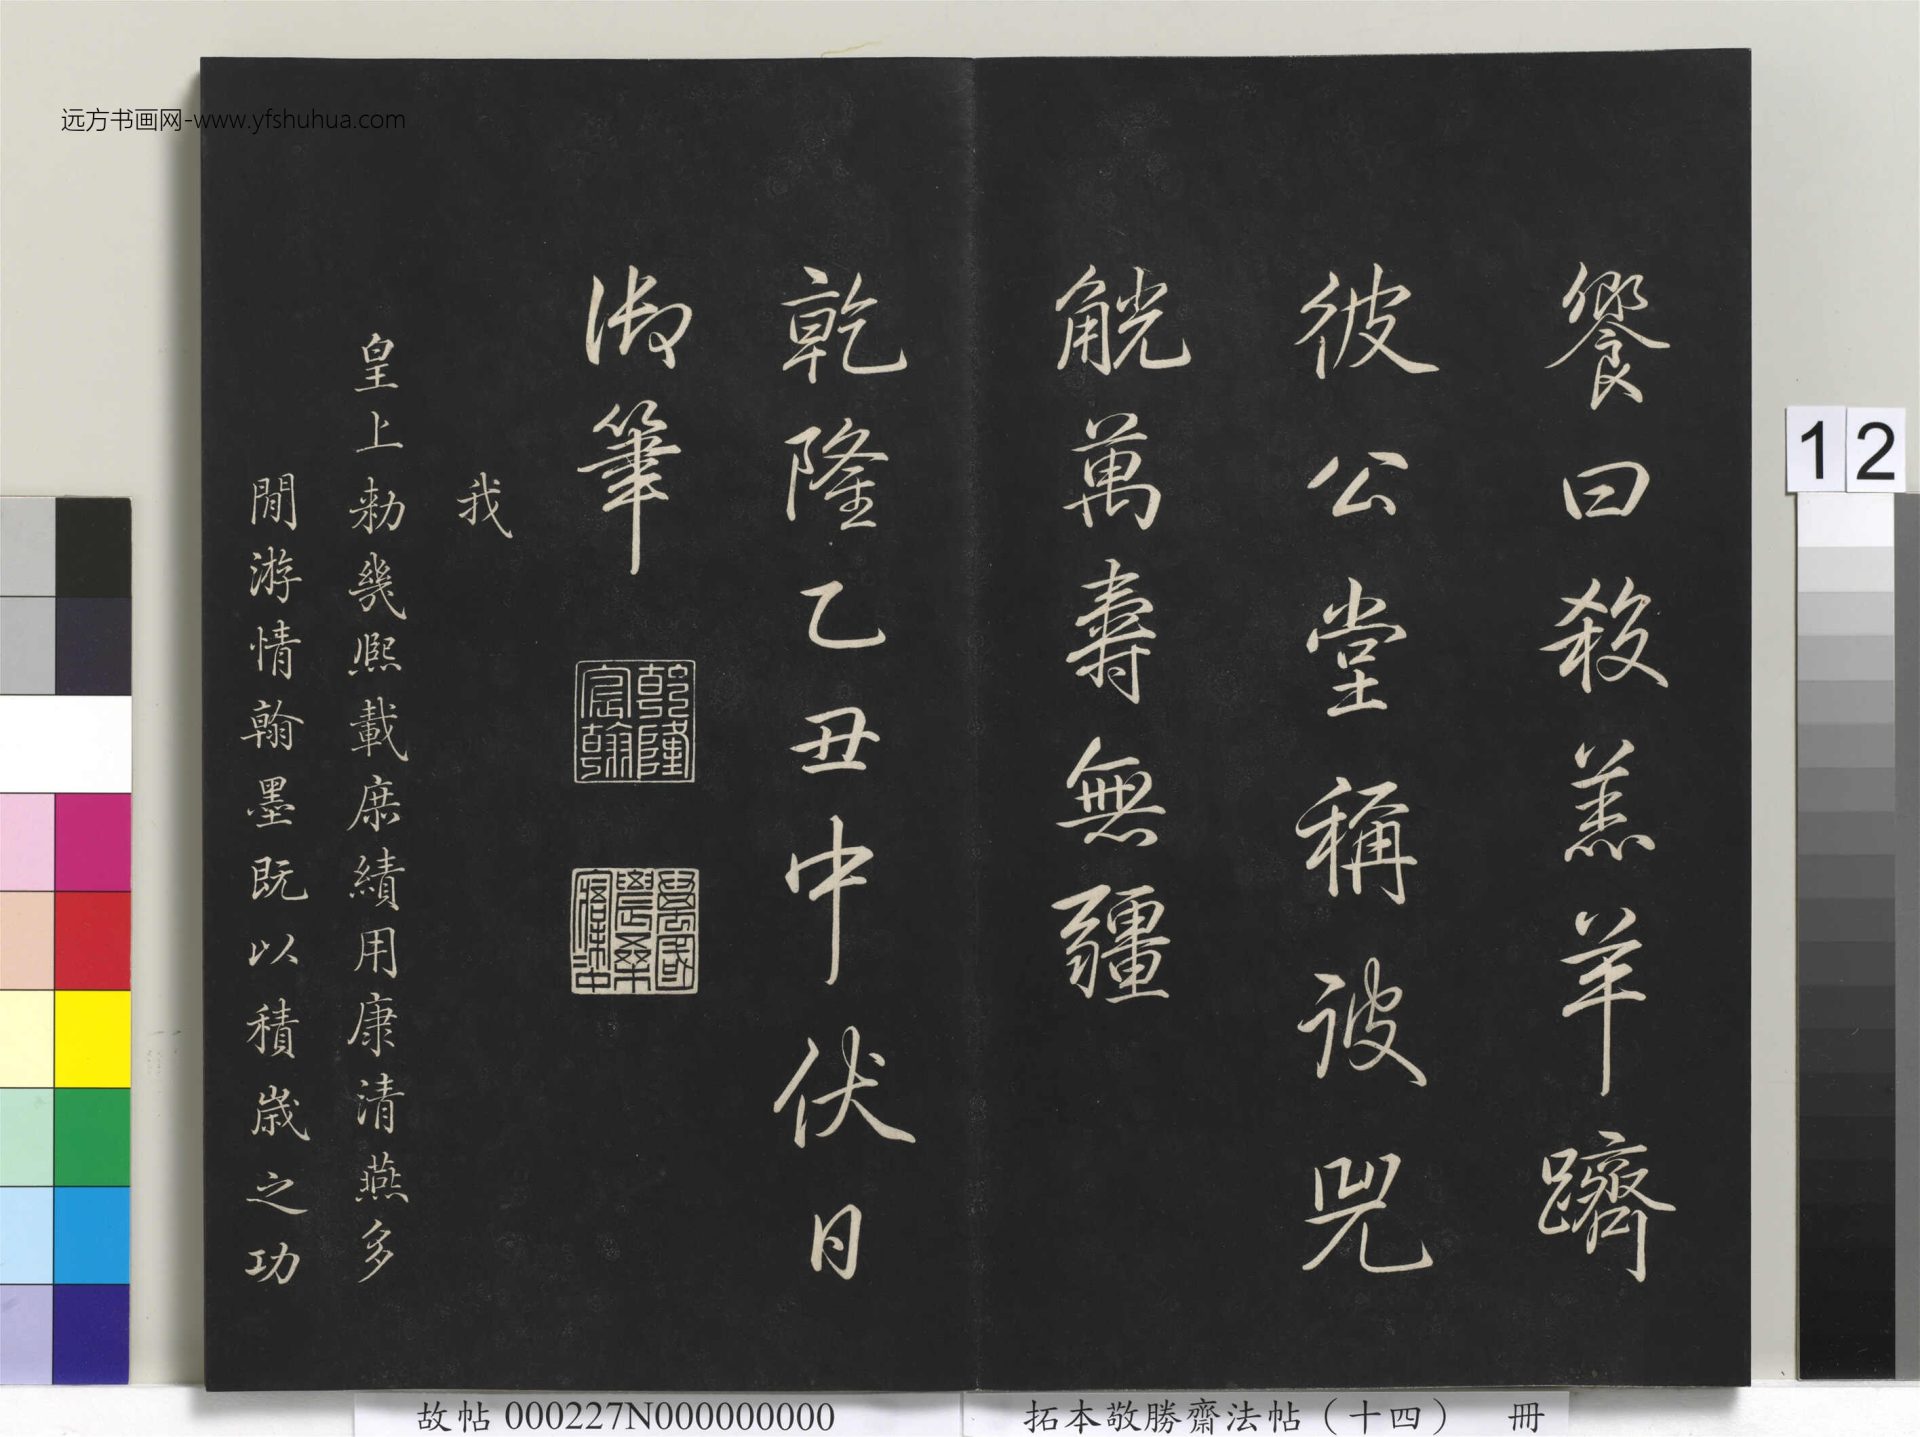 饗曰殺羔羊躋
彼公堂稱彼兕
觥萬壽無疆
乾隆乙丑中伏日
御筆
乾隆宸翰
我
皇上勑幾熙載庶績用康清燕多
閒游情翰墨既以積歲之功
远方书画网-www.yfshuhua.com
12
故帖 000227N000000000
拓本敬勝齋法帖（十四） 冊